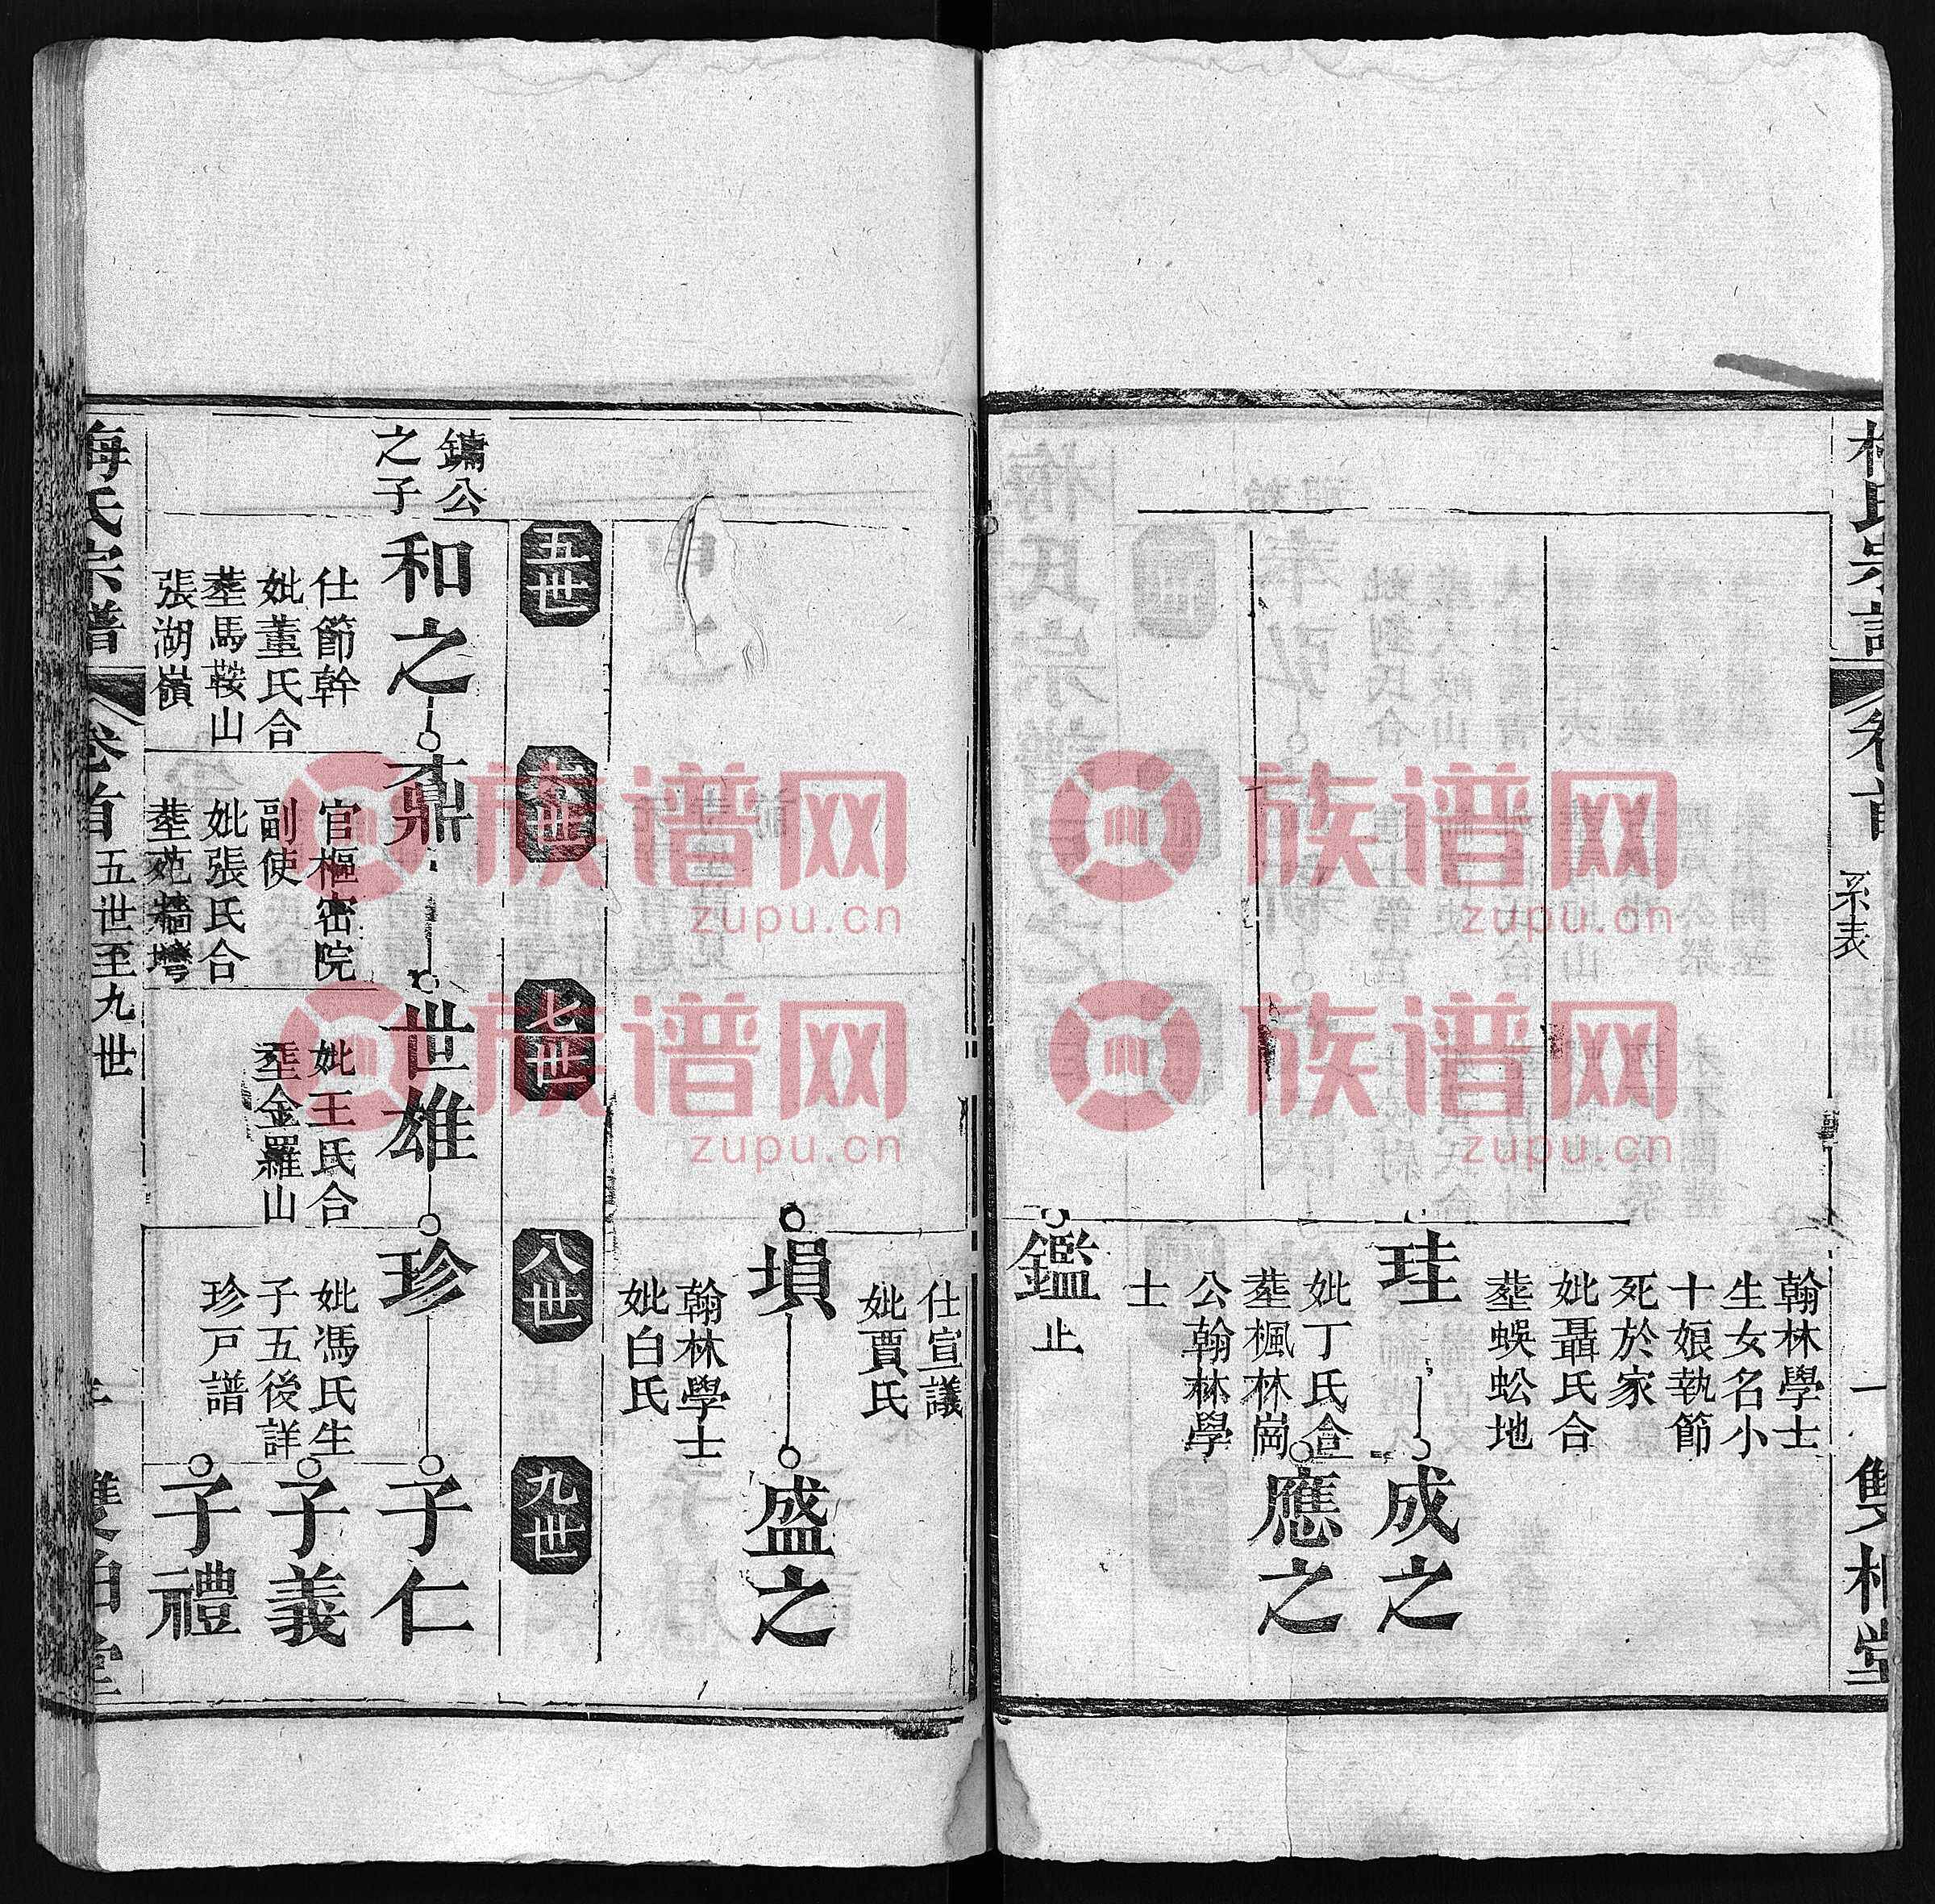 梅氏宗譜
卷首
系表
一
雙柏堂
翰林學士
生女名小
十娘執節
死於家
妣聶氏合
塟蜈蚣地
珪
成之
妣丁氏合
塟楓林崗
公翰林學
士
應之
鑑
止
仕宣議
妣賈氏
塤
盛之
翰林學士
妣白氏
五世
六世
七世
八世
九世
鏞公
之子
和之
仕節幹
妣董氏合
塟馬鞍山
張湖嶺
鼐
官樞密院
副使
妣張氏合
塟苑牆灣
世雄
妣王氏合
塟金羅山
珍
妣馮氏生
子五後詳
珍戸譜
子仁
子義
子禮
梅氏宗譜
卷首
五世至九世
雙柏堂
族谱网
zupu.cn
族谱网
zupu.cn
族谱网
zupu.cn
族谱网
zupu.cn